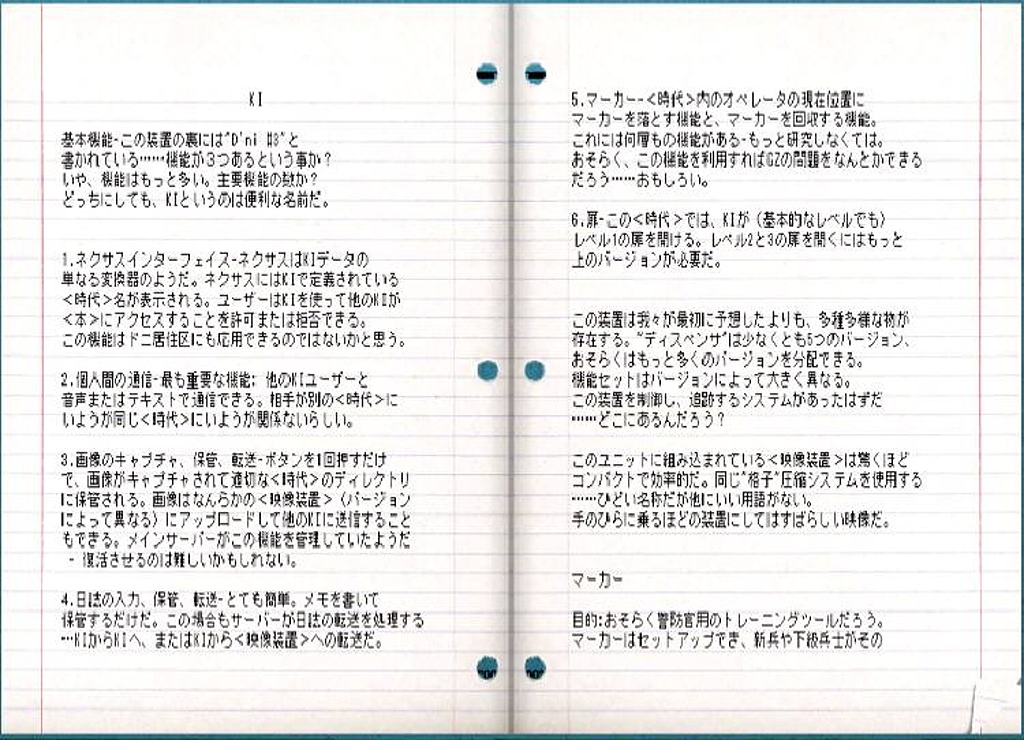 KI
基本機能-この装置の裏には"D'ni #3"と
書かれている……機能が３つあるという事か？
いや、機能はもっと多い。主要機能の数か？
どっちにしても、KIというのは便利な名前だ。
1.ネクサスインターフェイス-ネクサスはKIデータの
単なる変換器のようだ。ネクサスにはKIで定義されている
<時代>名が表示される。ユーザーはKIを使って他のKIが
<本>にアクセスすることを許可または拒否できる。
この機能はドニ居住区にも応用できるのではないかと思う。
2.個人間の通信-最も重要な機能: 他のKIユーザーと
音声またはテキストで通信できる。相手が別の<時代>に
いようが同じ<時代>にいようが関係ないらしい。
3.画像のキャプチャ、保管、転送-ボタンを1回押すだけ
で、画像がキャプチャされて適切な<時代>のディレクトリ
に保管される。画像はなんらかの<映像装置>（バージョン
によって異なる）にアップロードして他のKIに送信すること
もできる。メインサーバーがこの機能を管理していたようだ
- 復活させるのは難しいかもしれない。
4.日誌の入力、保管、転送-とても簡単。メモを書いて
保管するだけだ。この場合もサーバーが日誌の転送を処理する
…KIからKIへ、またはKIから<映像装置>への転送だ。
5.マーカー-<時代>内のオペレータの現在位置に
マーカーを落とす機能と、マーカーを回収する機能。
これには何層もの機能がある-もっと研究しなくては。
おそらく、この機能を利用すればGZの問題をなんとかできる
だろう……おもしろい。
6.扉-この<時代>では、KIが（基本的なレベルでも）
レベル1の扉を開ける。レベル2と3の扉を開くにはもっと
上のバージョンが必要だ。
この装置は我々が最初に予想したよりも、多種多様な物が
存在する。"ディスペンサ"は少なくとも5つのバージョン、
おそらくはもっと多くのバージョンを分配できる。
機能セットはバージョンによって大きく異なる。
この装置を制御し、追跡するシステムがあったはずだ
……どこにあるんだろう？
このユニットに組み込まれている<映像装置>は驚くほど
コンパクトで効率的だ。同じ"格子"圧縮システムを使用する
……ひどい名称だが他にいい用語がない。
手のひらに乗るほどの装置にしてはすばらしい映像だ。
マーカー
目的:おそらく警防官用のトレーニングツールだろう。
マーカーはセットアップでき、新兵や下級兵士がその